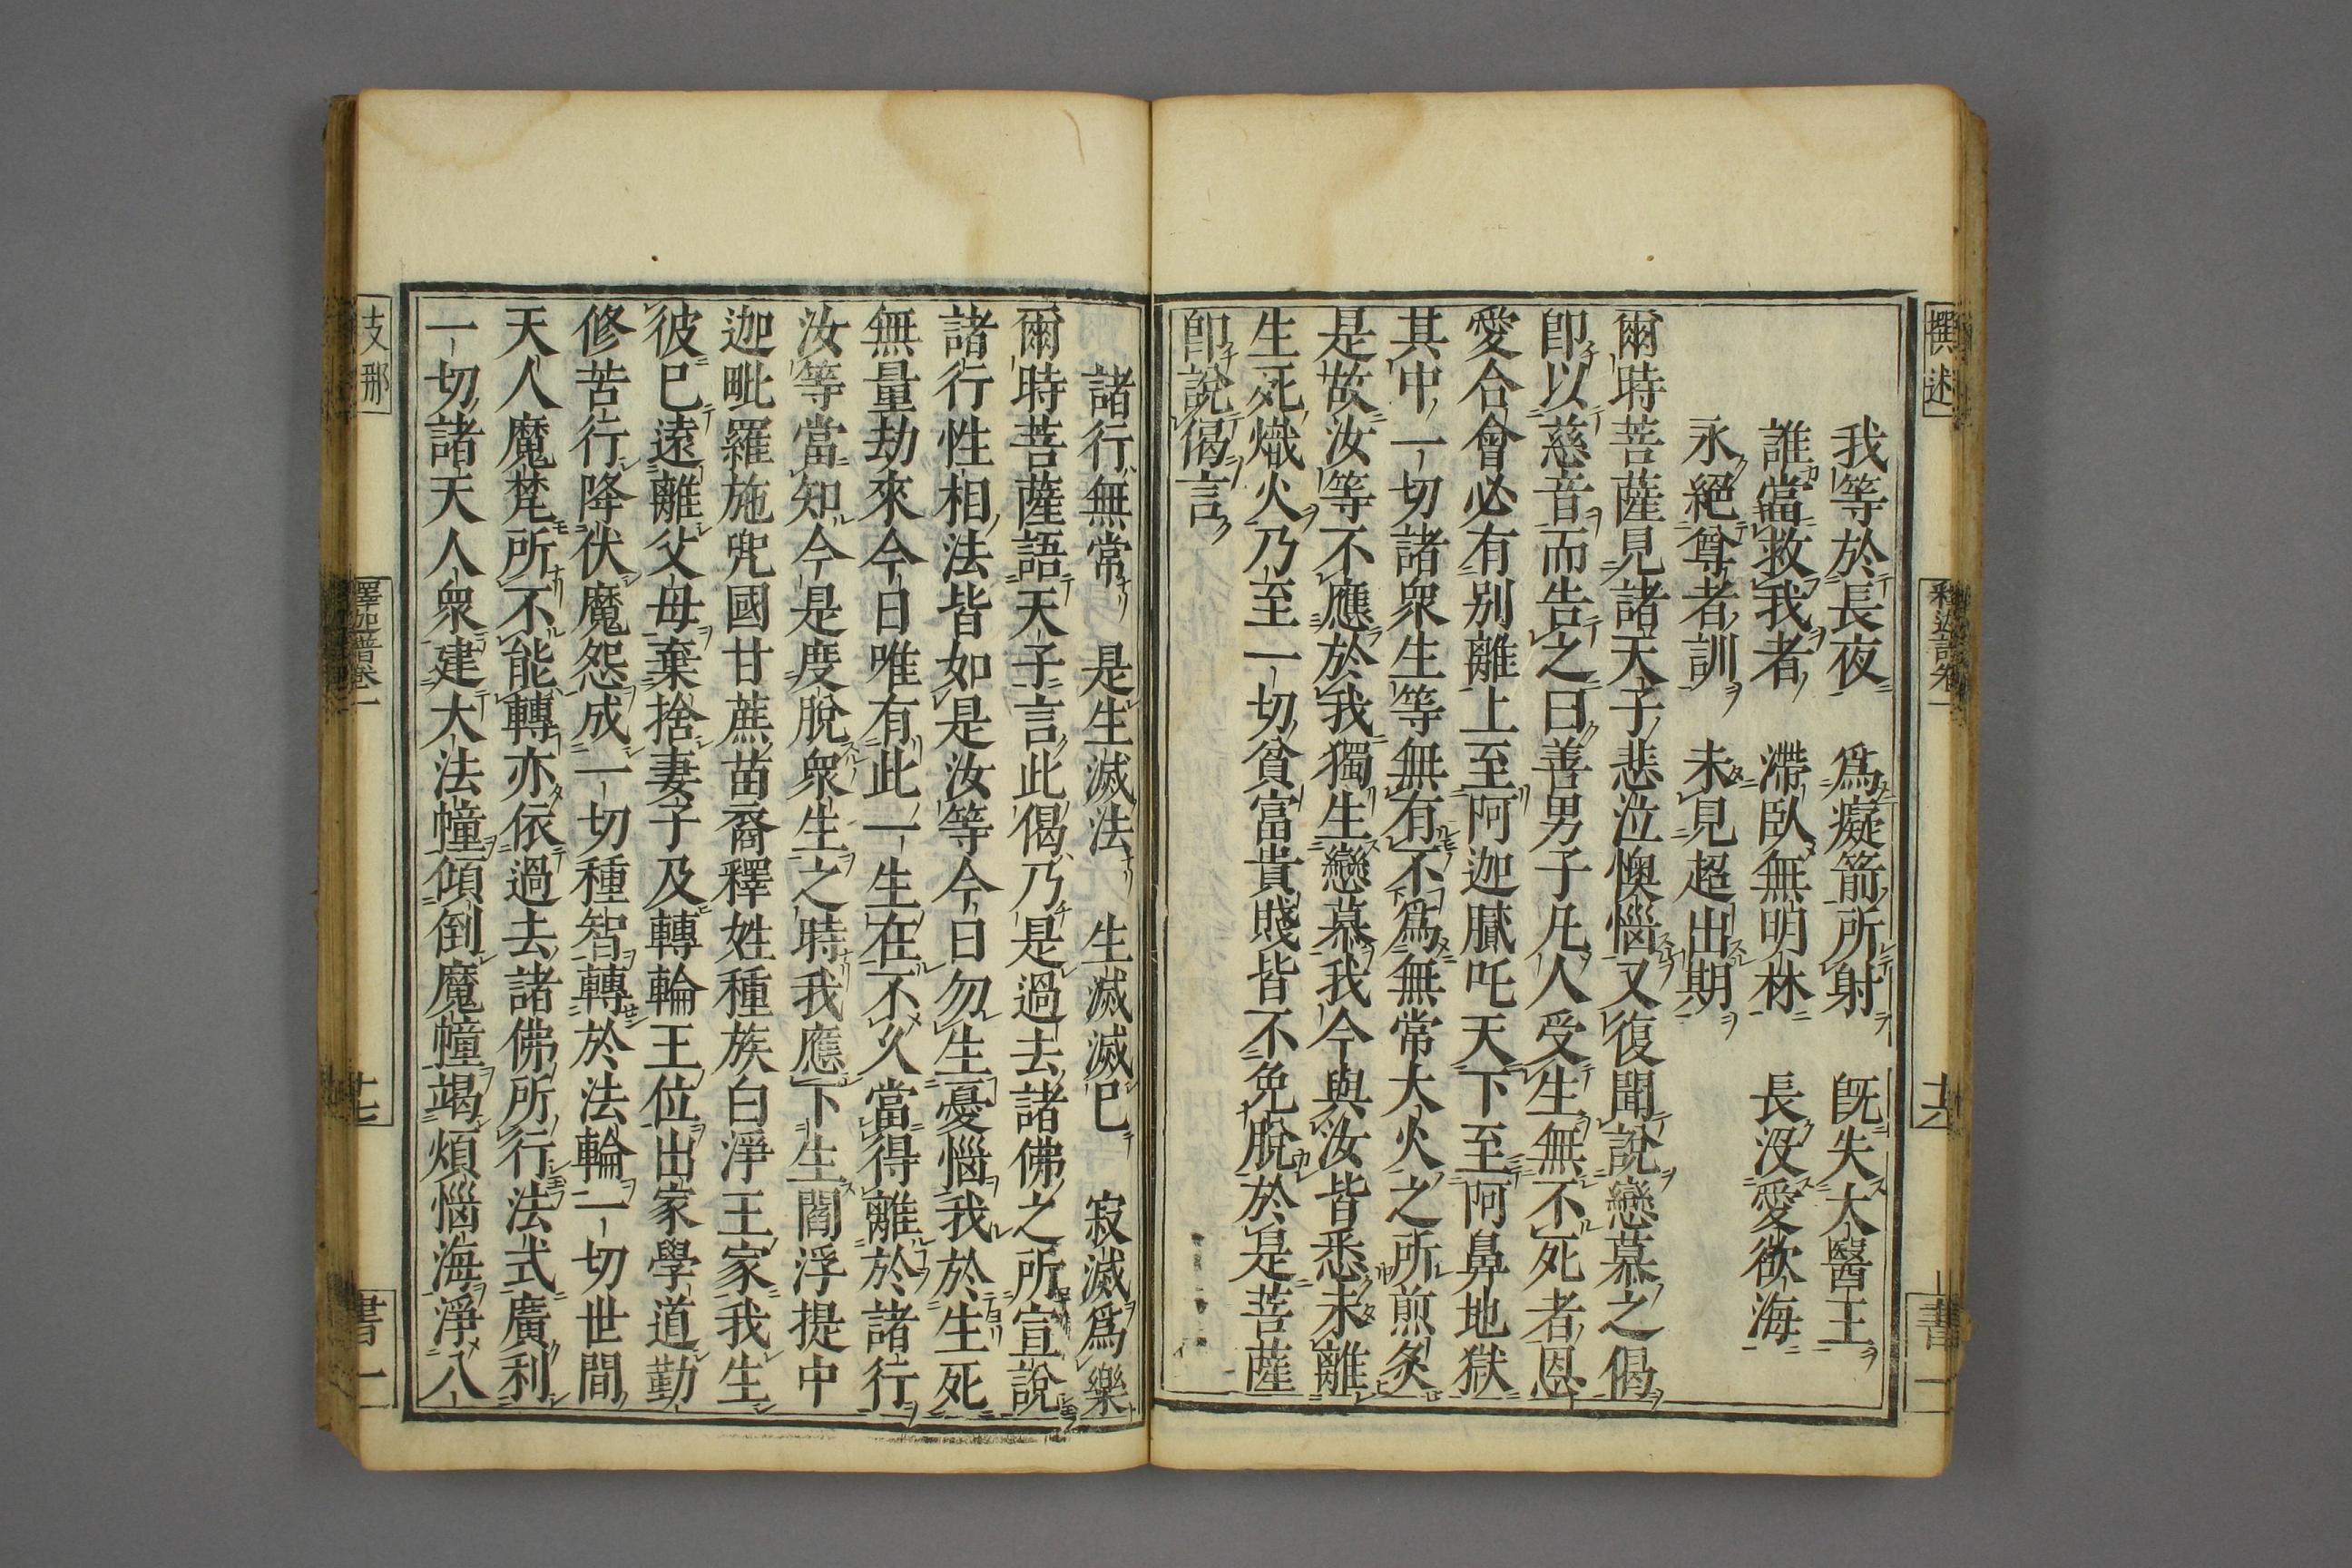 撰述
釋迦譜卷一
書一
我等於長夜　爲癡箭所射　旣失大醫王
誰當救我者　滯臥無明林　長沒愛欲海
永絕尊者訓　未見超出期
爾時菩薩見諸天子悲泣懊惱又復聞說戀慕之偈
卽以慈音而告之曰善男子凡人受生無不死者恩
愛合會必有別離上至阿迦膩吒天下至阿鼻地獄
其中一切諸衆生等無有不爲無常大火之所煎炙
是故汝等不應於我獨生戀慕我今與汝皆悉未離
生死熾火乃至一切貧富貴賤皆不免脫於是菩薩
卽說偈言
諸行無常　是生滅法　生滅滅已　寂滅爲樂
爾時菩薩語天子言此偈乃是過去諸佛之所宣說
諸行性相法皆如是汝等今日勿生憂惱我於生死
無量劫來今日唯有此一生在不久當得離於諸行
汝等當知今是度脫衆生之時我應下生閻浮提中
迦毗羅施兜國甘蔗苗裔釋姓種族白淨王家我生
彼已遠離父母棄捨妻子及轉輪王位出家學道勤
修苦行降伏魔怨成一切種智轉於法輪一切世間
天人魔梵所不能轉亦依過去諸佛所行法式廣利
一切諸天人衆建大法幢傾倒魔幢竭煩惱海淨八
支那
釋迦譜卷一
廿七
書一